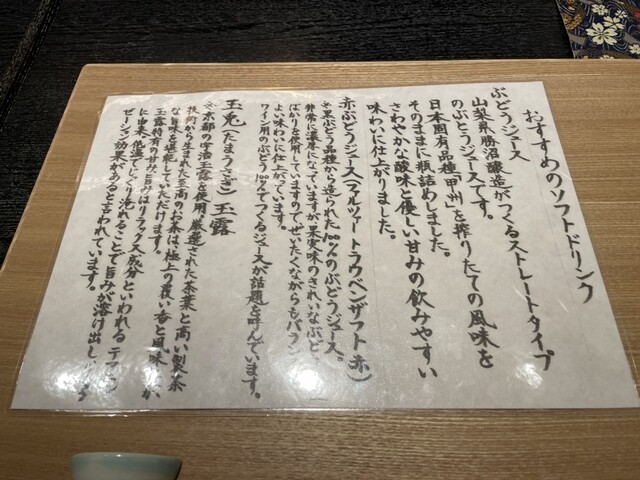 おすすめのソフトドリンク
ぶどうジュース
山梨県勝沼醸造がつくるストレートタイプ
のぶどうジュースです。
日本固有品種「甲州」を搾りたての風味を
そのままに瓶詰めしました。
さわやかな酸味と優しい甘みの飲みやすい
味わいに仕上がりました。
赤ぶどうジュース(マルツァートラウベンザフト赤)
※黒ぶどう品種から造られた100%のぶどうジュース。
非常に濃厚になっていますが果実味のきれいなぶどう
ばかりを使用していますのでぜいたくながらもバラン
よい味わいに仕上がっています。
ワイン用のぶどう100%でつくるジュースが話題を呼んでいます。
玉兎(たまうさぎ)玉露
※京都の宇治玉露を使用。厳選された茶葉と高い製茶
技術から生まれた至高のお茶は、極上の覆い香と風味
な旨味を堪能していただけます。
玉露特有の甘みと旨みはリラックス成分といわれるテアニン
に由来。低温でじっくり淹れることで旨みが溶け出し
ゼーション効果があると言われています。